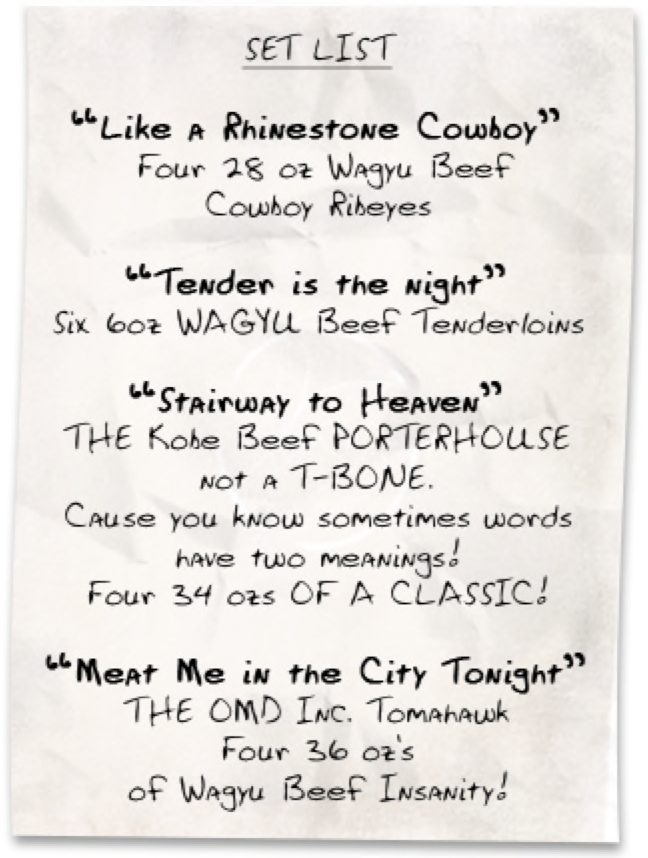 SET LIST
“Like A Rhinestone Cowboy”
Four 28 oz Wagyu Beef
Cowboy Ribeyes
“Tender is the night”
Six 6oz WAGYU Beef Tenderloins
“Stairway to Heaven”
THE Kobe Beef PORTERHOUSE
not A T-BONE.
Cause you know sometimes words
have two meanings!
Four 34 ozs OF A CLASSIC!
“Meat Me in the City Tonight”
THE OMD Inc. Tomahawk
Four 36 oz's
of Wagyu Beef Insanity!